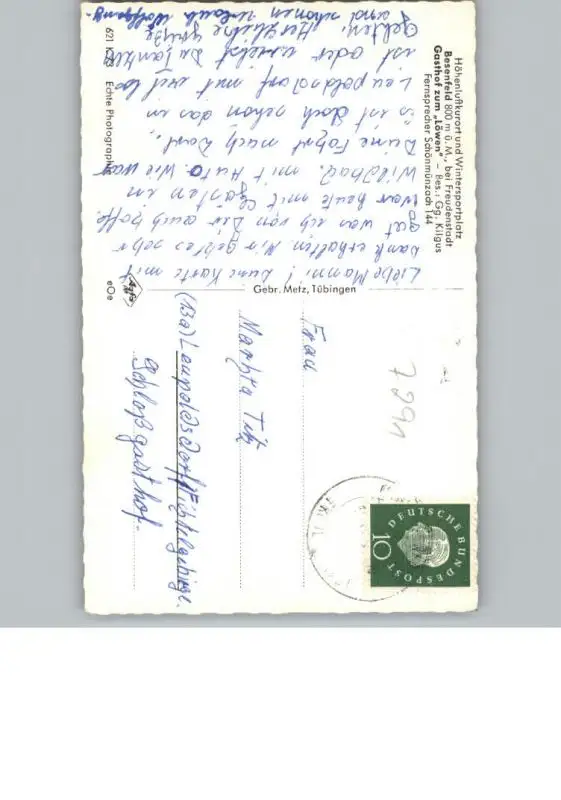 Höhenluftkurort und Wintersportplatz
Besenfeld 800 m ü. M., bei Freudenstadt
Gasthof zum „Löwen" - Bes.: Gg. Kilgus
Fernsprecher Schönmünzach 144
Liebe Mammi! Deine Karte mit
Dank erhalten. Mir geht es sehr
gut was ich von Dir auch hoffe.
War heute mit Gästen in
Wildbad. mit Auto. Wie war
Deine Fahrt nach Dort.
es ist doch schön das in
Leupoldsdorf mit
ist oder
Herzliche Grüße
und schönen Urlaub Wolfgang.
621 K 23 Echte Photographie
Agfa
eOe
Gebr. Metz, Tübingen
7291
DEUTSCHE BUNDESPOST
10
Frau
Martha
(13a) Leupoldsdorf/Fichtelgebirge.
Schloßgasthof.